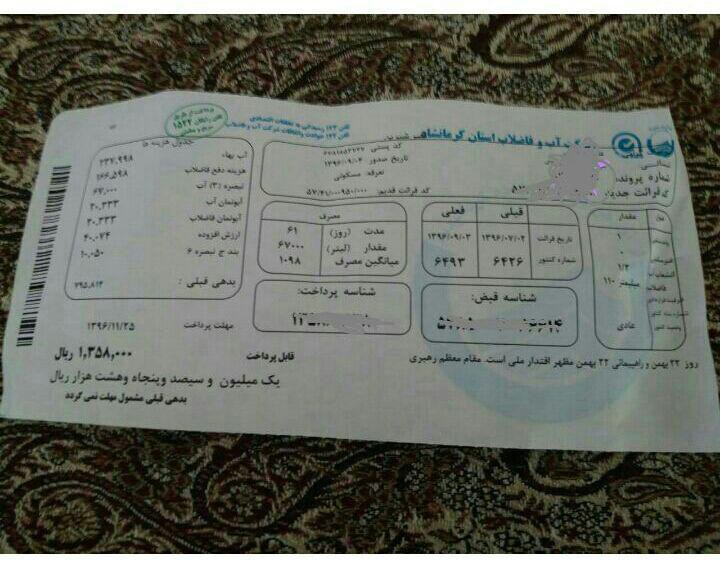 شرکت آب و فاضلاب استان کرمانشاه
تلفن ۱۲۳ رسیدگی به تخلفات اقتصادی
تلفن ۱۲۲ حوادث و اتفاقات شرکت آب و فاضلاب
۱۵۲۲
شماره پرونده
کد پستی
تاریخ صدور ۱۳۹۶/۰۹/۰۴
تعرفه مسکونی
کد قرائت قدیم:
جدول هزینه ها
آب بهاء ۲۳۷,۹۹۸
هزینه دفع فاضلاب ۱۶۶,۵۹۸
تبصره (۳) آب ۶۷,۰۰۰
آبونمان آب ۲۰,۳۳۳
آبونمان فاضلاب ۲۰,۳۳۳
ارزش افزوده ۴۰,۰۷۴
بند ج تبصره ۶ ۱۰,۰۵۰
بدهی قبلی : ۷۹۵,۸۱۴
مصرف
مدت (روز) ۶۱
مقدار (لیتر) ۶۷۰۰۰
میانگین مصرف ۱۰۹۸
قبلی فعلی
تاریخ قرائت ۱۳۹۶/۰۷/۰۲ ۱۳۹۶/۰۹/۰۳
شماره کنتور ۶۴۲۶ ۶۴۹۳
مقدار
۱
۰
۱/۲
۱۱۰ میلیمتر
عادی
شناسه قبض:
شناسه پرداخت:
مهلت پرداخت ۱۳۹۶/۱۱/۲۵
قابل پرداخت ۱,۳۵۸,۰۰۰ ریال
یک میلیون و سیصد و پنجاه و هشت هزار ریال
بدهی قبلی مشمول مهلت نمی گردد
روز ۲۲ بهمن و راهپیمائی ۲۲ بهمن مظهر اقتدار ملی است. مقام معظم رهبری